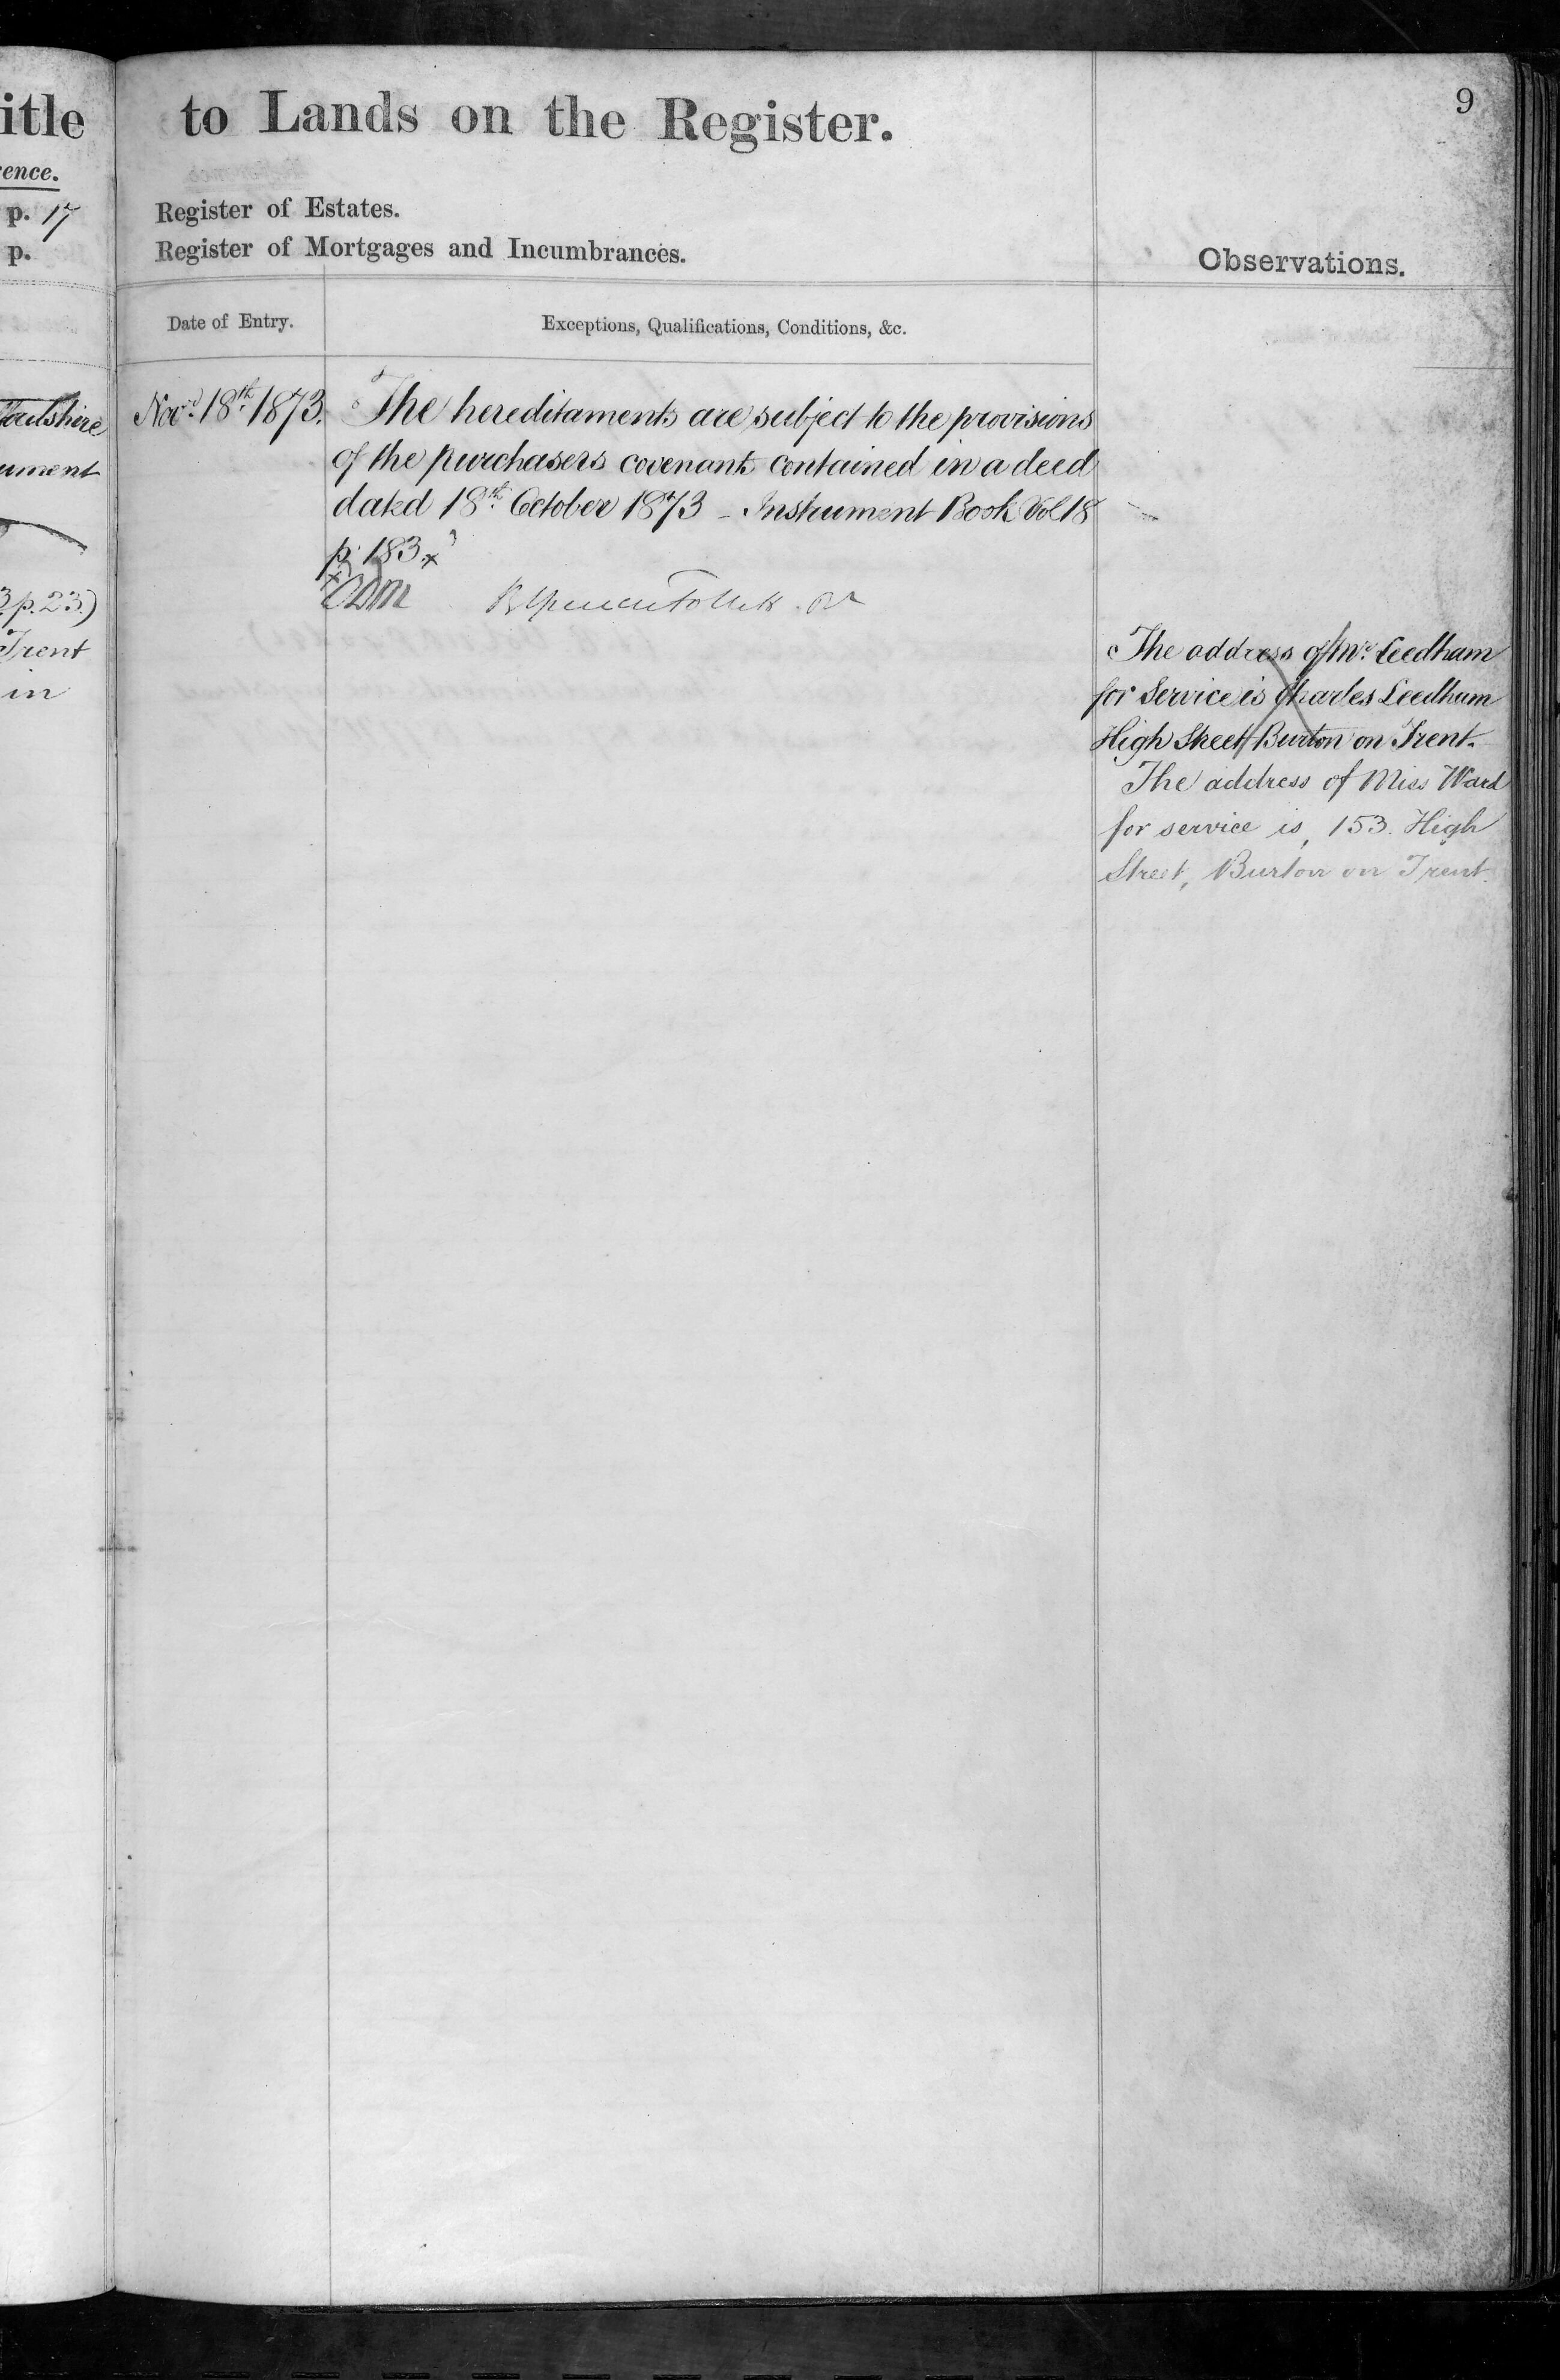 itle
ence.
p. 17
p.
ument
3.p.23.)
Trent
in
to Lands on the Register.
9
Register of Estates.
Register of Mortgages and Incumbrances.
Observations.
Date of Entry.
Exceptions, Qualifications, Conditions, &c.
Novr. 18th. 1873.
The hereditaments are subject to the provisions
of the purchasers covenants contained in a deed
dated 18th. October 1873 - Instrument Book Vol 18
p. 183.x
The address of Mr. Leedham
for Service is Charles Leedham
High Street Burton on Trent.
The address of Miss Ward
for service is, 153. High
Street, Burton on Trent.